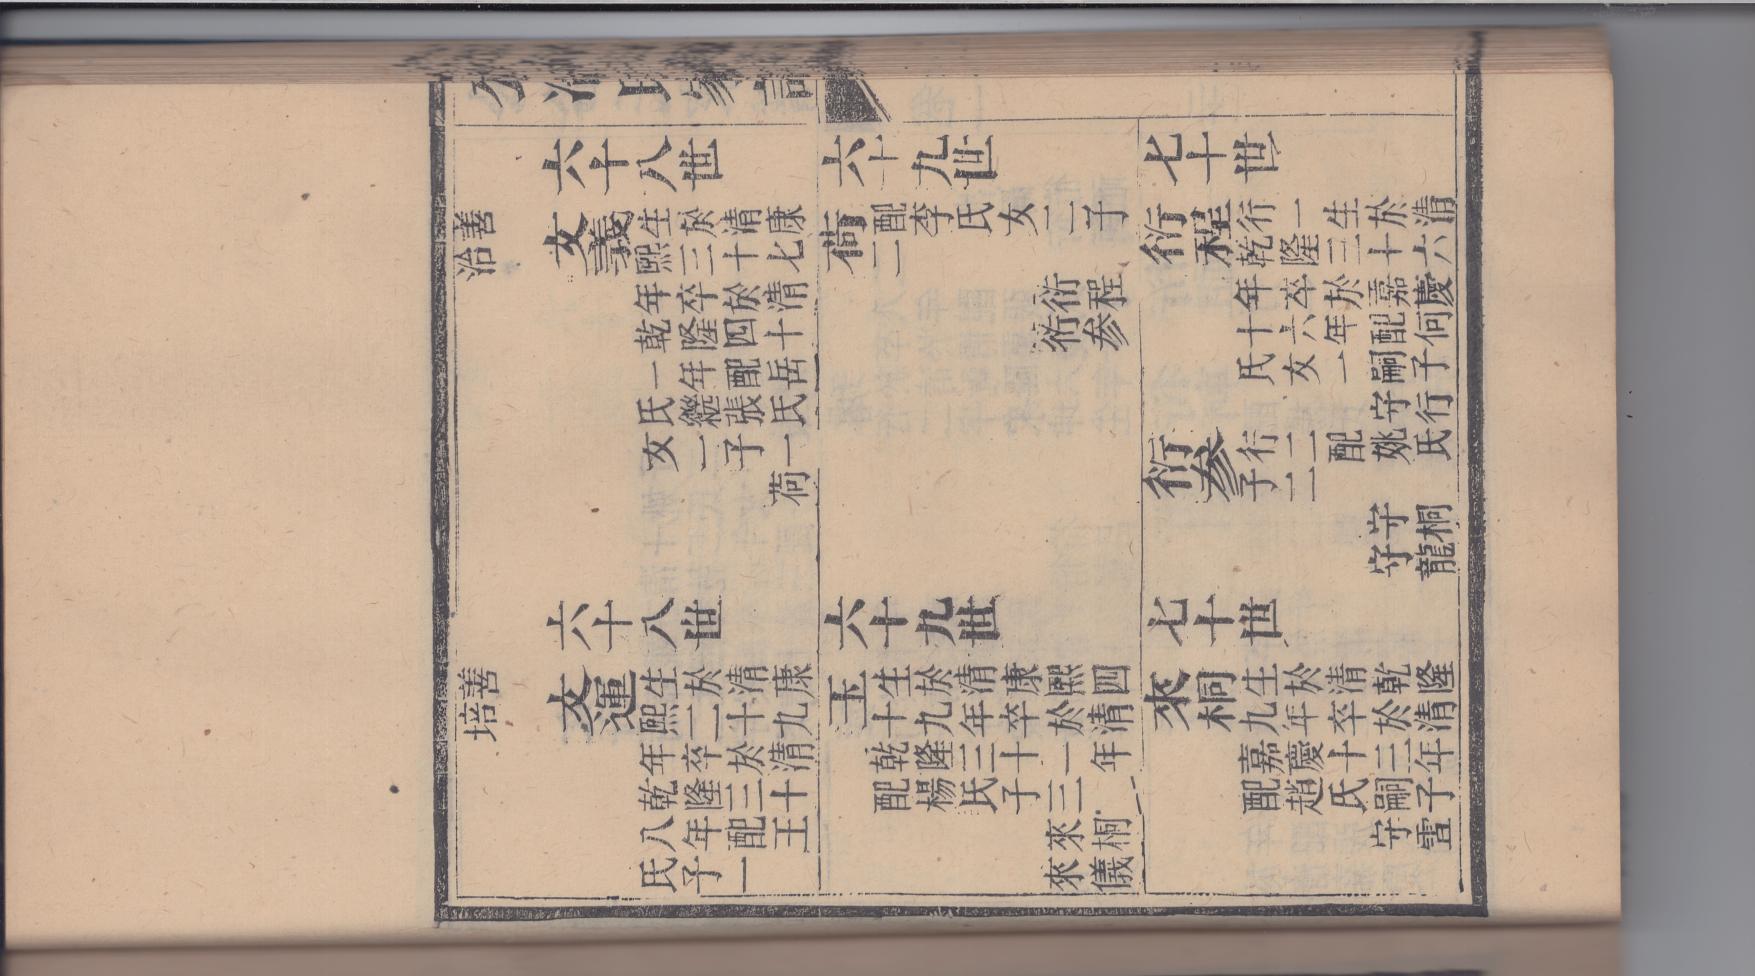 六十八世
善治
文義
生於清康
熙三十七
年卒於清
乾隆四十
一年配岳
氏繼張氏
女二子一
荷
六十九世
荷
配李氏女二子
二
衍程
衍参
七十世
衍程
行一生於清
乾隆三十六
年卒於嘉慶
十六年配何
氏女一嗣子
守行
衍参
行二配姚氏
子二
守桐
守龍
六十八世
善培
文運
生於清康
熙二十九
年卒於清
乾隆三十
八年配王
氏子一
六十九世
玉
生於清康熙四
十九年卒於清
乾隆三十一年
配楊氏子二
來桐
來儀
七十世
來桐
生於清乾隆
九年卒於清
嘉慶十三年
配趙氏嗣子
守雪